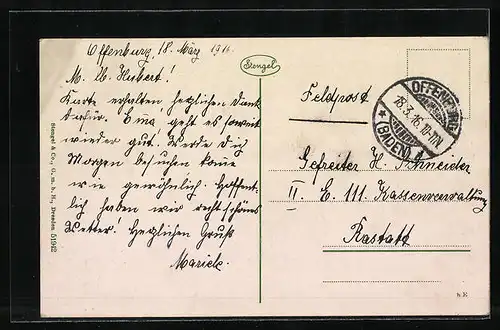 Offenburg 18. März 1916.
M. lb. Hubert!
Karte erhalten herzlichen Dank
dafür. Oma geht es soweit
wieder gut. Werde Dich
Morgen besuchen komme
wie gewöhnlich. Hoffent-
lich haben wir recht schönes
Wetter! Herzlichen Gruß
Mariele.
Stengel
Stengel & Co., G. m. b. H., Dresden 51942
Feldpost
OFFENBURG
18.3.16.10-11V.
* (BADEN)
Gefreiter H. Schneider
II. E. 111. Kassenverwaltung
Rastatt